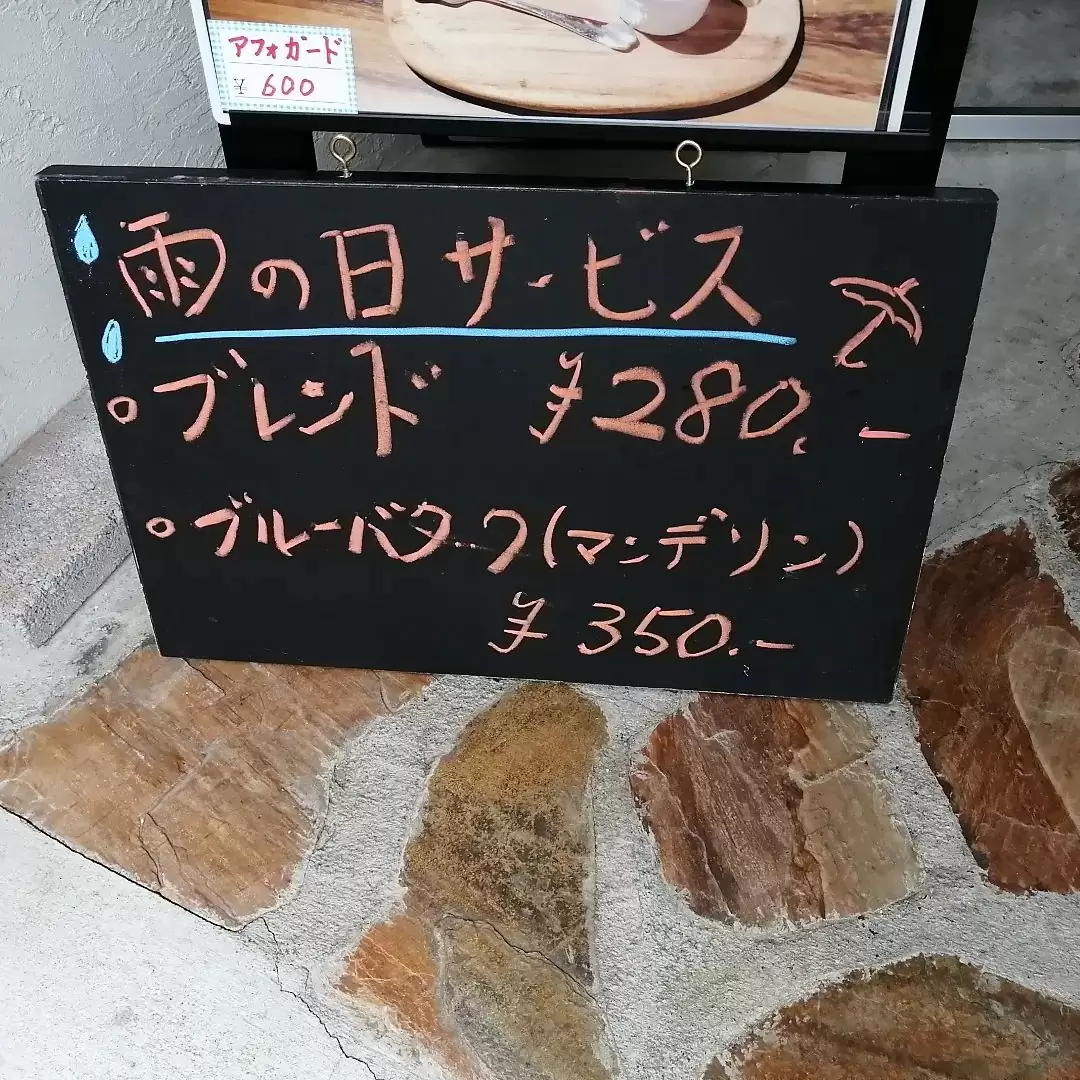 アフォガード
¥600
雨の日サービス
○ブレンド ¥280.-
○ブルーバターク(マンデリン)
¥350.-